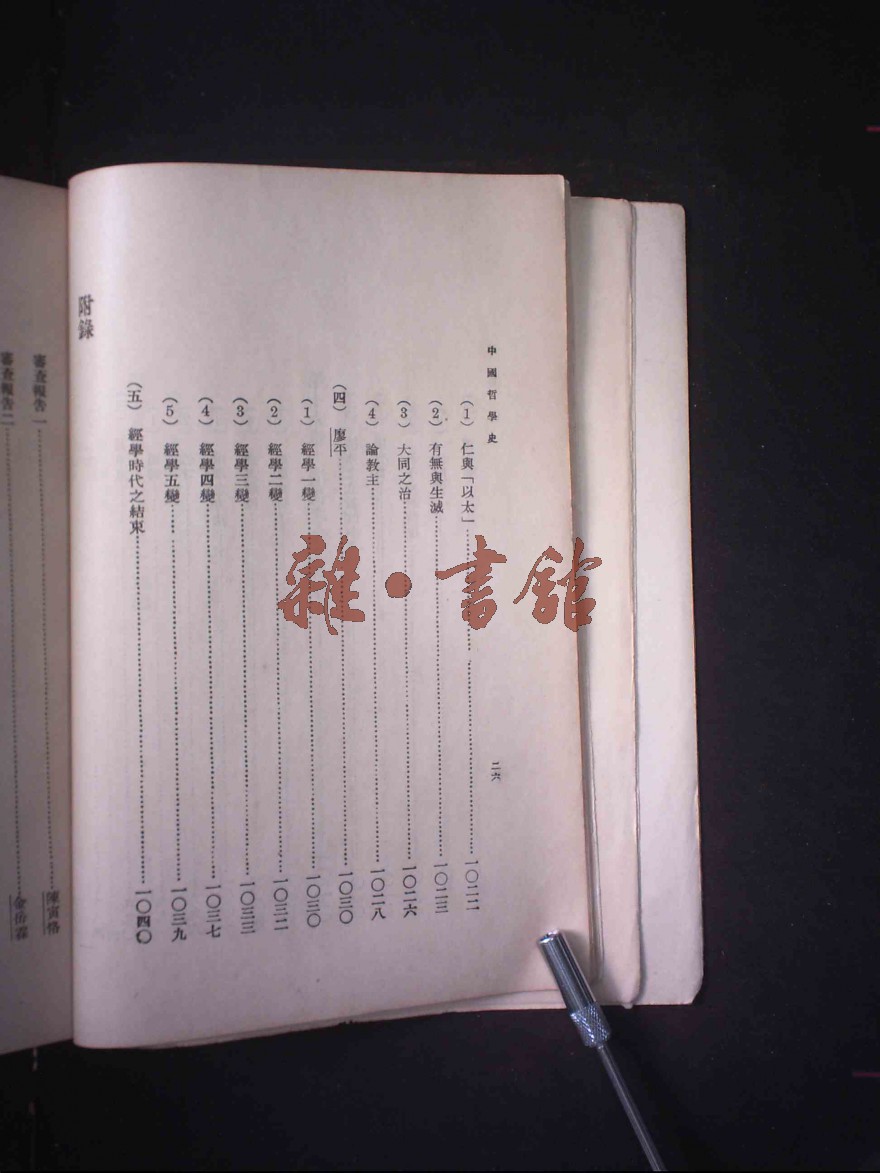 中國哲學史
二六
(1) 仁與「以太」……一〇二二
(2) 有無與生滅……一〇二三
(3) 大同之治……一〇二六
(4) 論教主……一〇二八
(四) 廖平……一〇三〇
(1) 經學一變……一〇三〇
(2) 經學二變……一〇三二
(3) 經學三變……一〇三三
(4) 經學四變……一〇三七
(5) 經學五變……一〇三九
(五) 經學時代之結束……一〇四〇
附錄
審查報告一……陳寅恪
審查報告二……金岳霖
雜·書舘